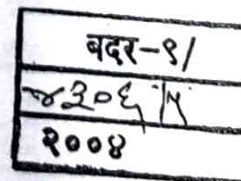 बदर-९/
४३०६/५
२००४